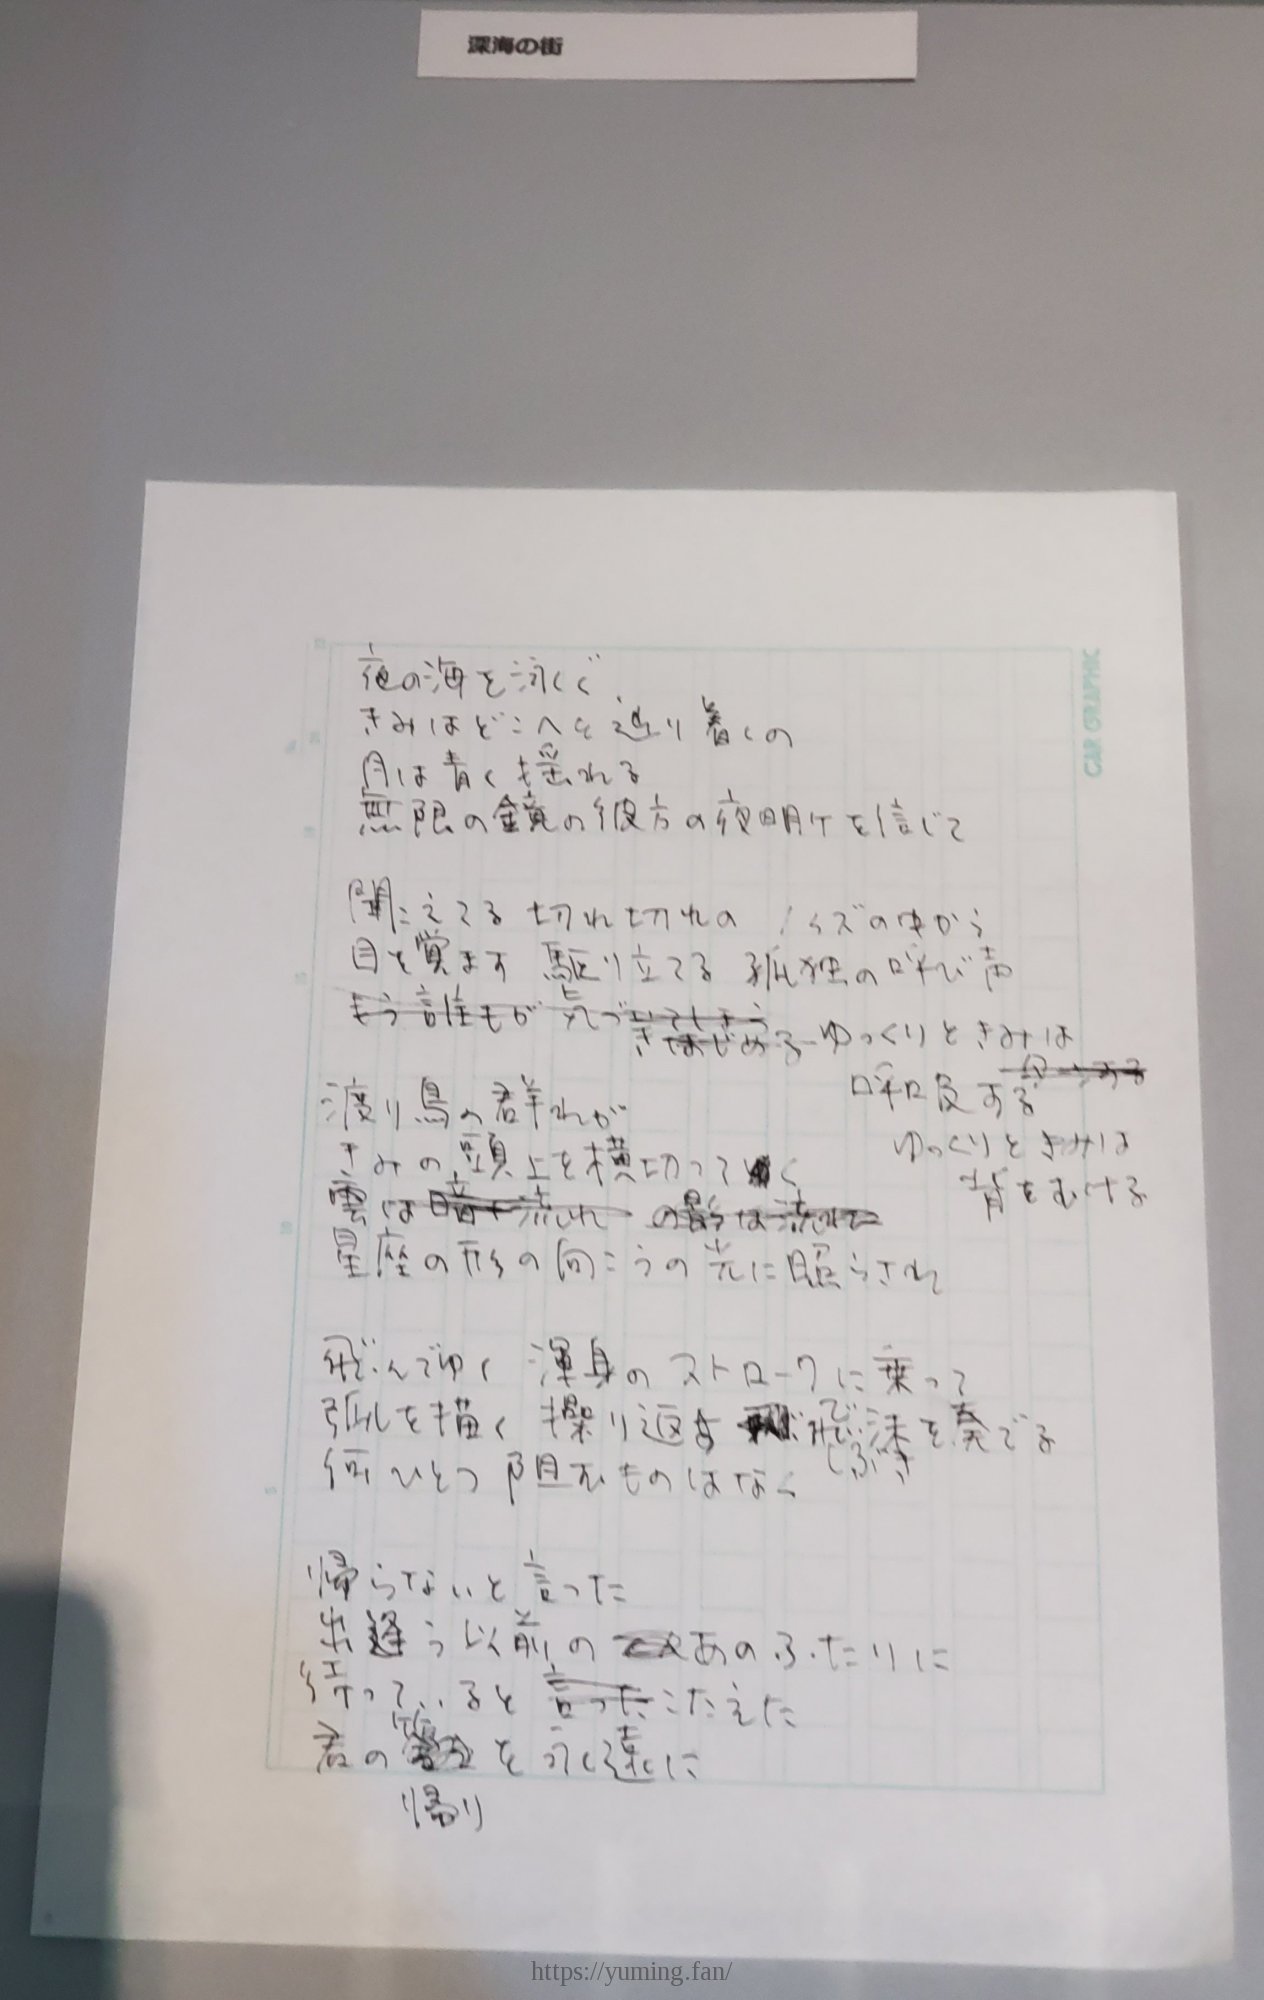 深海の街
CAR GRAPHIC
夜の海を泳ぐ
きみはどこへと辿り着くの
月は青く揺れる
無限の鏡の彼方の夜明けを信じて
聞こえてる 切れ切れの ノイズの中から
目を覚ます 駆り立てる 孤独の呼び声
もう誰もが気づ
きはじめる ゆっくりときみは
呼吸する
渡り鳥の群れが
ゆっくりときみは
きみの頭上を横切ってく
背をむける
雲は暗く流れ の影は流れて
星座の形の向こうの光に照らされ
飛んでゆく 渾身のストロークに乗って
弧を描く 操り返す 飛沫を奏でる
しぶき
何ひとつ阻むものはなく
帰らないと言った
出逢う以前の あのふたりに
待っていると言ったこたえた
君の を永遠に
帰り
https://yuming.fan/